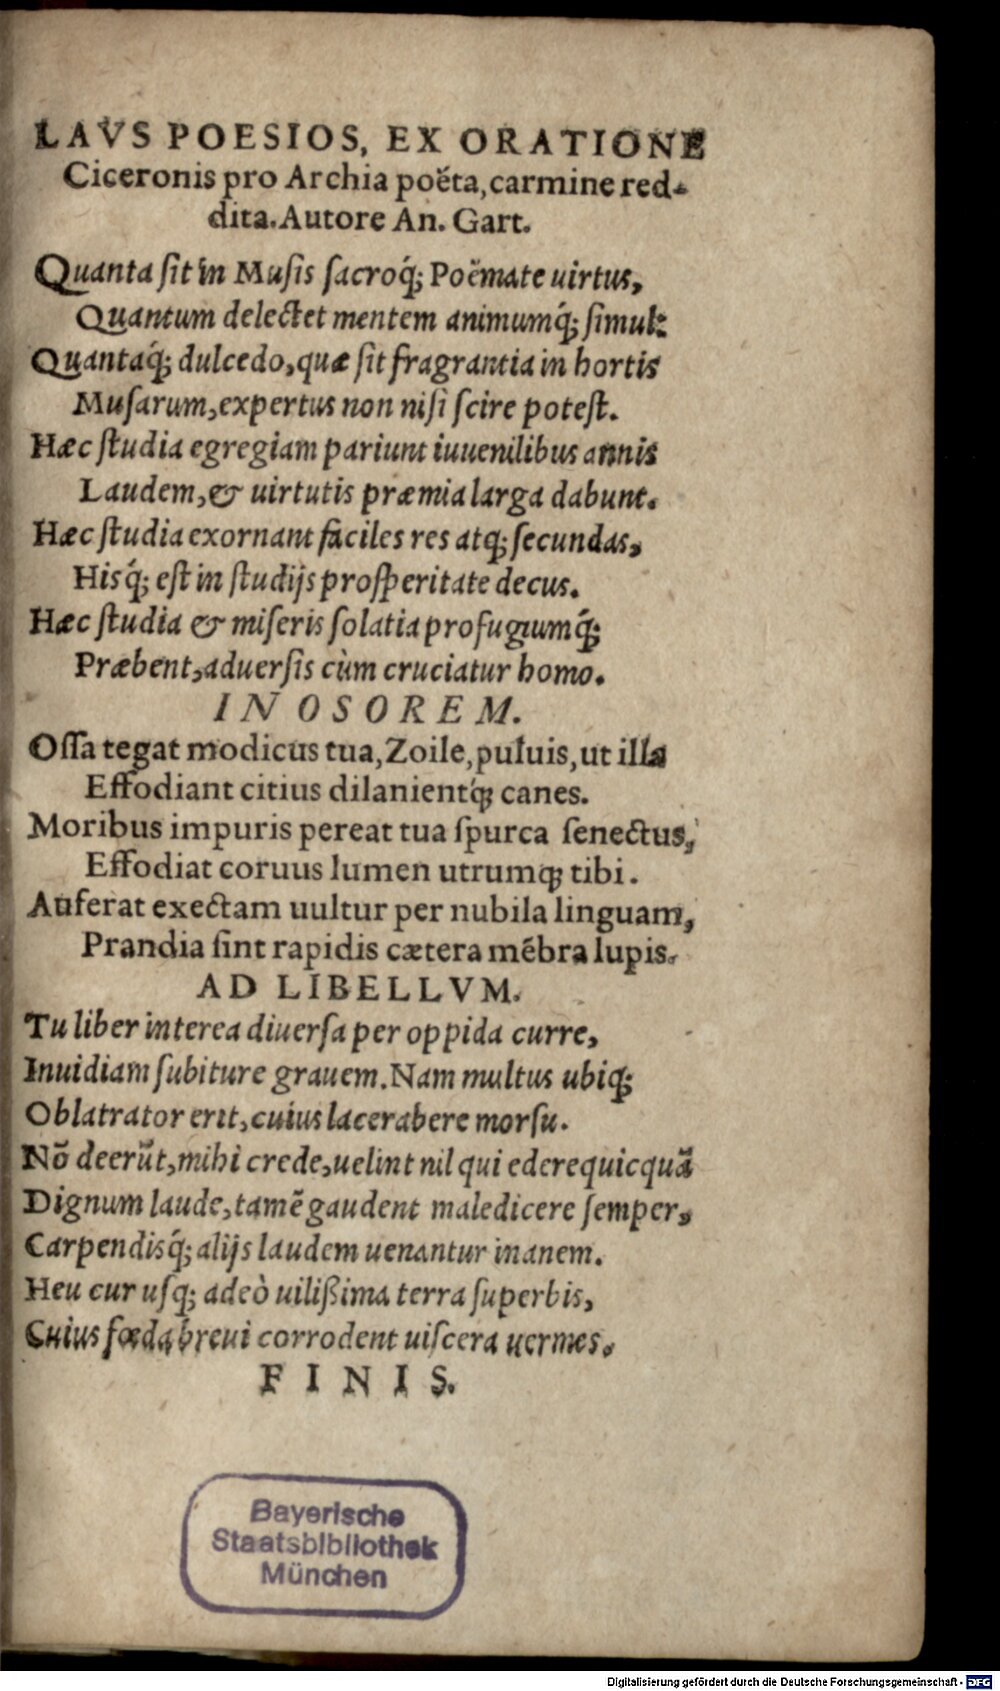 LAVS POESIOS, EX ORATIONE
Ciceronis pro Archia poëta, carmine red-
dita. Autore An. Gart.
Quanta ſit in Muſis ſacroq́; Poëmate uirtus,
Quantum delectet mentem animumq́; ſimul:
Quantaq́; dulcedo, quæ ſit fragrantia in hortis
Muſarum, expertus non niſi ſcire poteſt.
Hæc ſtudia egregiam pariunt iuuenilibus annis
Laudem, & uirtutis præmia larga dabunt.
Hæc ſtudia exornant faciles res atq; ſecundas,
Hisq́; eſt in ſtudijs proſperitate decus.
Hæc ſtudia & miſeris ſolatia profugiumq́;
Præbent, aduerſis cùm cruciatur homo.
IN OSOREM.
Oſſa tegat modicus tua, Zoile, puluis, ut illa
Effodiant citius dilanientq́; canes.
Moribus impuris pereat tua ſpurca ſenectus,
Effodiat coruus lumen utrumq; tibi.
Auferat exectam uultur per nubila linguam,
Prandia ſint rapidis cætera mẽbra lupis.
AD LIBELLVM.
Tu liber interea diuerſa per oppida curre,
Inuidiam ſubiture grauem. Nam multus ubiq;
Oblatrator erit, cuius lacerabere morſu.
Nõ deerũt, mihi crede, uelint nil qui edere quicquã
Dignum laude, tamẽ gaudent maledicere ſemper,
Carpendisq́; alijs laudem uenantur inanem.
Heu cur uſq; adeò uilißima terra ſuperbis,
Cuius fœda breui corrodent uiſcera uermes.
FINIS.
Bayerische
Staatsbibliothek
München
Digitalisierung gefördert durch die Deutsche Forschungsgemeinschaft - DFG